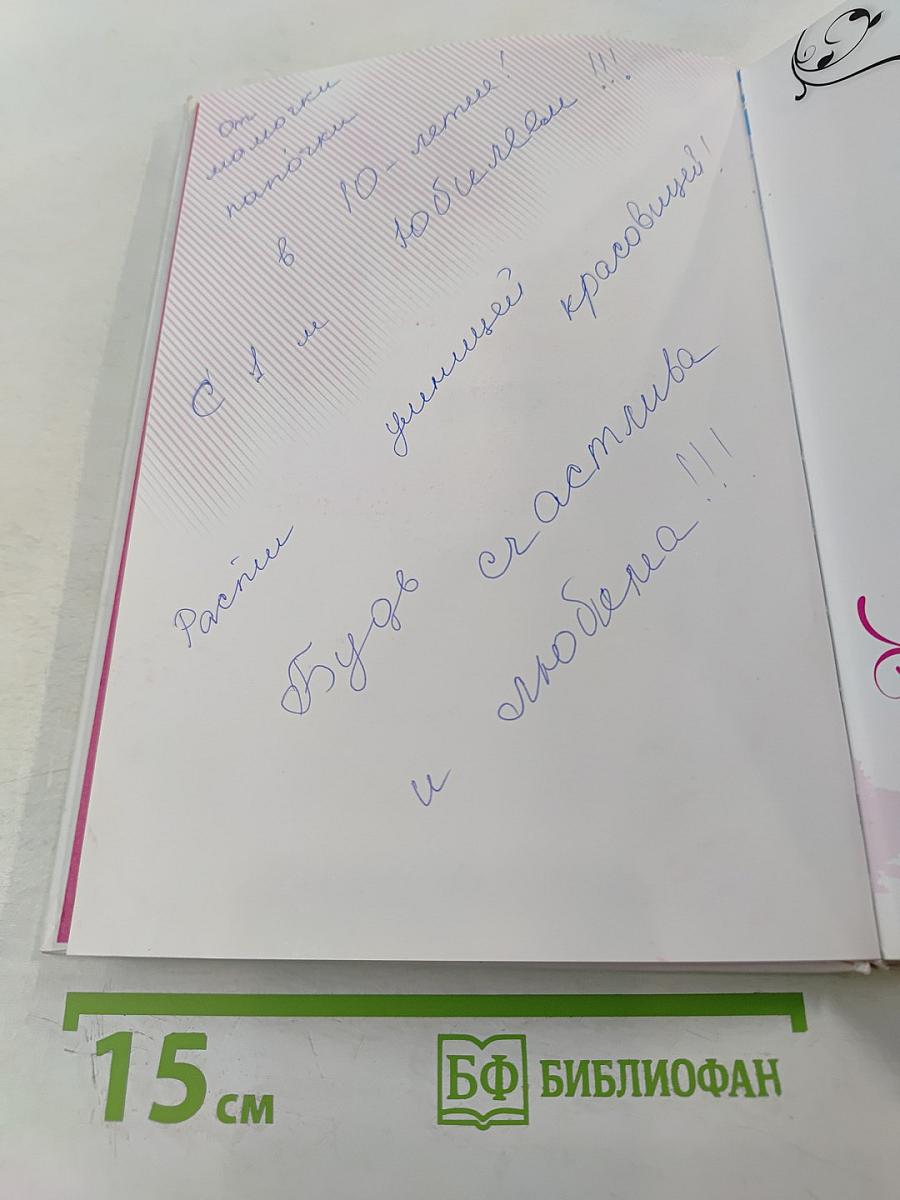 От
мамочки
папочки
в 10-летие!
С 1 м Юбилеем!!!
Расти умницей красовицей!
Будь счастлива
и любима!!!
15 см
БФ БИБЛИОФАН